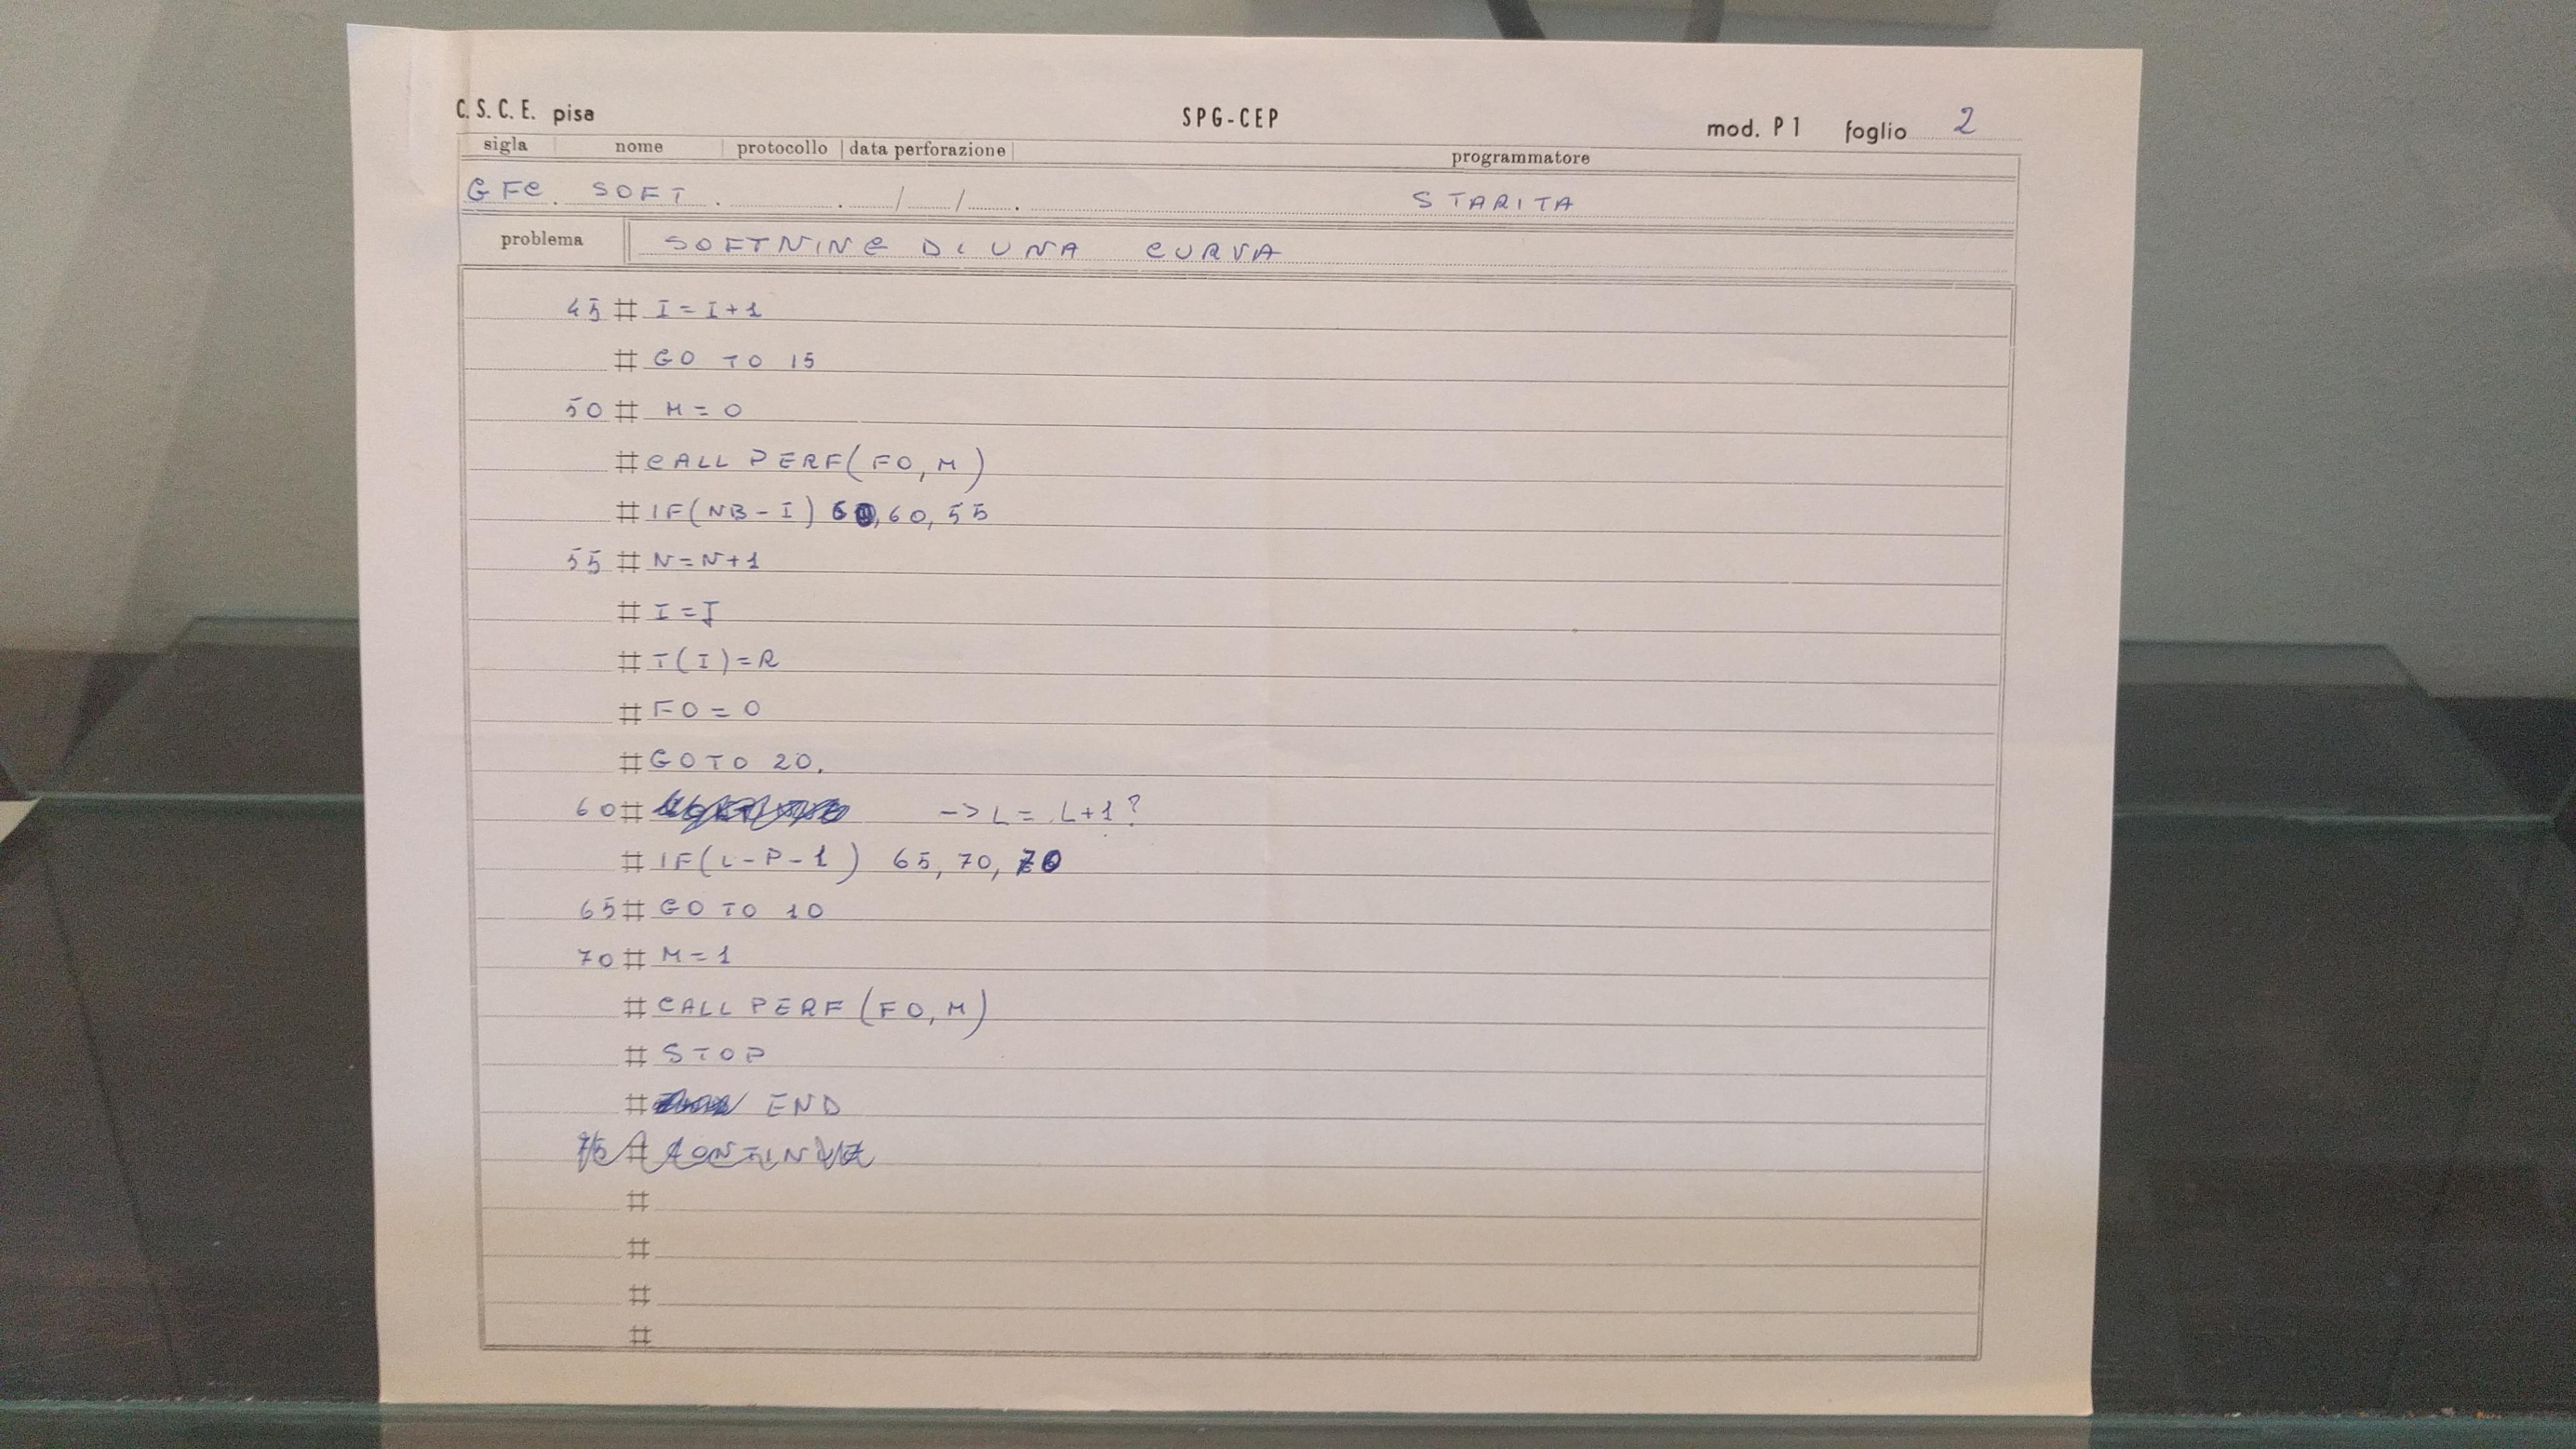 C. S. C. E. pisa SPG-CEP mod. P 1 foglio 2
sigla nome protocollo data perforazione programmatore
GFC. SOFT . . / / . STARITA
problema SOFTNING DI UNA CURVA
45 # I = I + 1
# GO TO 15
50 # M = 0
# CALL PERF(FO, M)
# IF(NB - I) 60, 60, 55
55 # N = N + 1
# I = J
# T(I) = R
# FO = 0
# GO TO 20.
60 # -> L = L + 1 ?
# IF(L - P - 1) 65, 70, 70
65 # GO TO 10
70 # M = 1
# CALL PERF (FO, M)
# STOP
# END
75 # CONTINUE
#
#
#
#